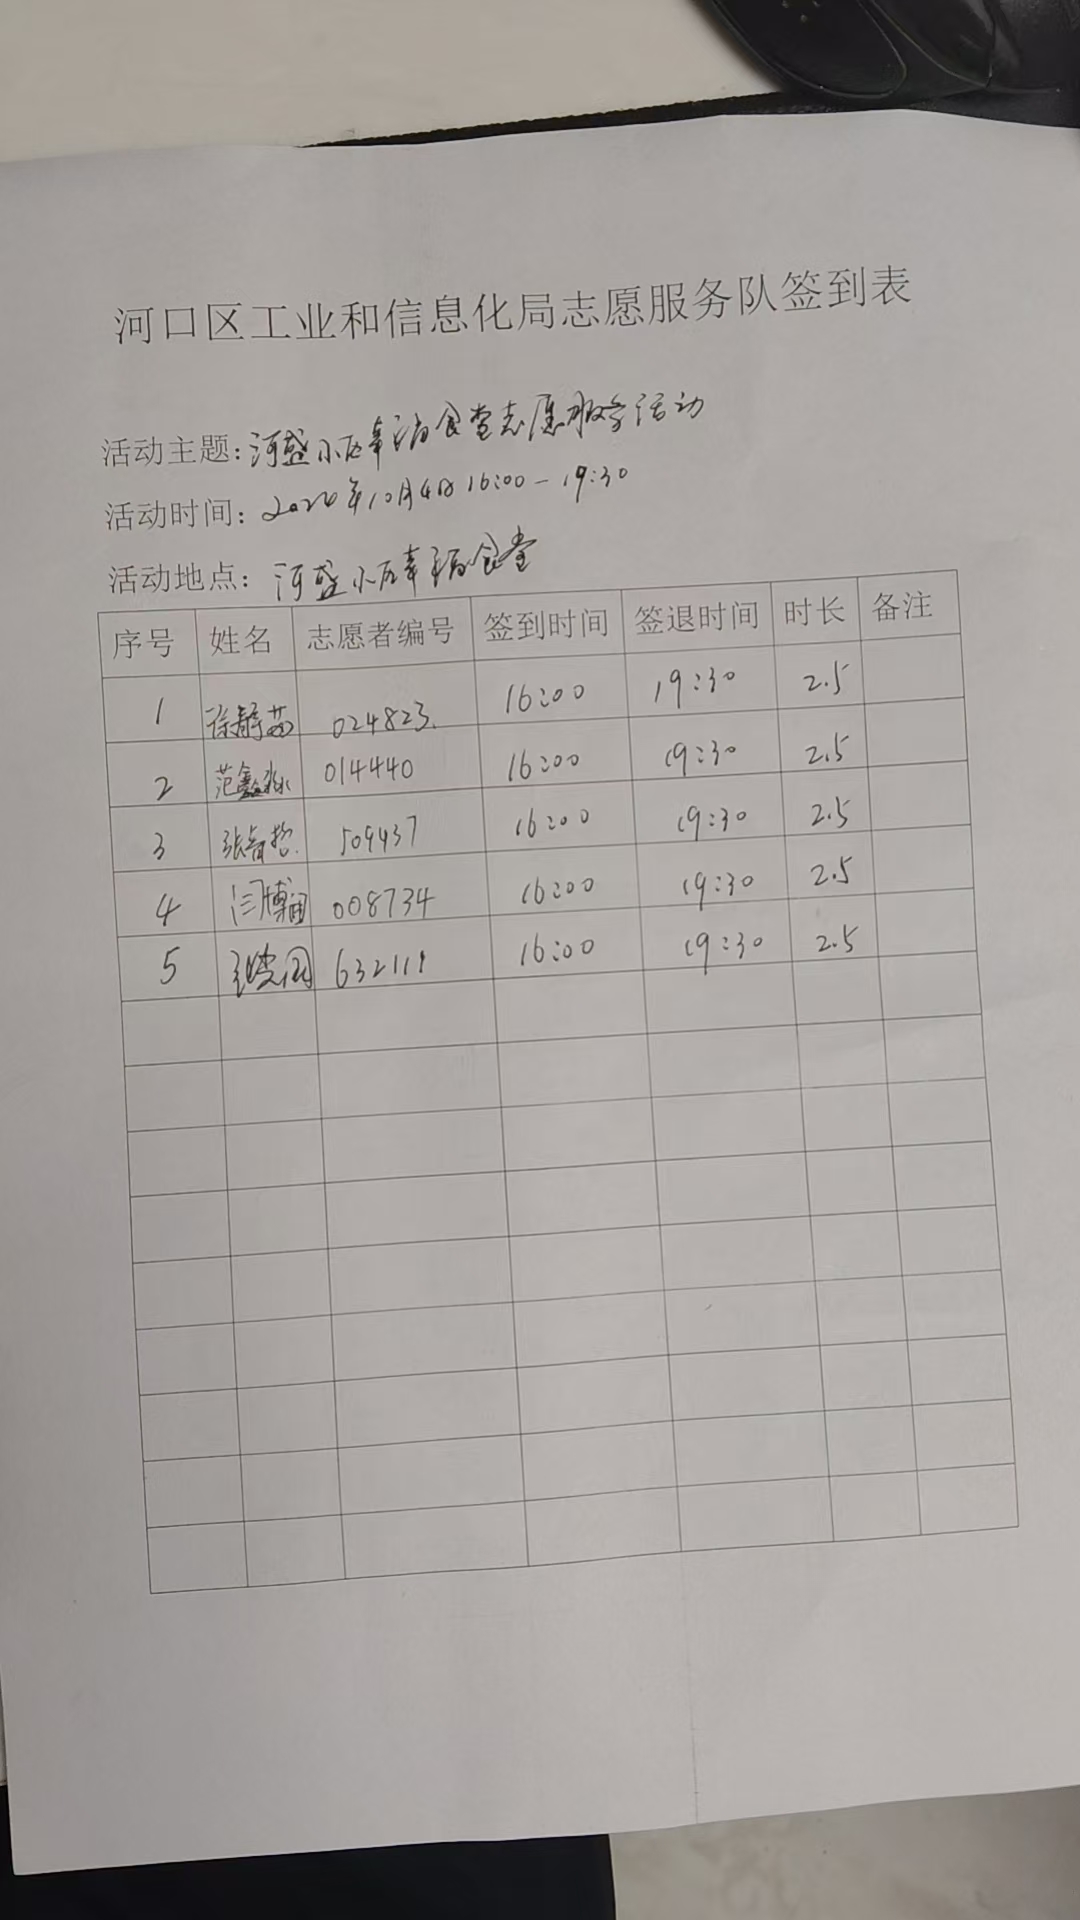 河口区工业和信息化局志愿服务队签到表
活动主题:河盛小区幸福食堂志愿服务活动
活动时间:2024年10月4日16:00-19:30
活动地点:河盛小区幸福食堂
序号 姓名 志愿者编号 签到时间 签退时间 时长 备注
1 徐静茹 024823. 16:00 19:30 2.5
2 范鑫淼 014440 16:00 19:30 2.5
3 张智哲 509437 16:00 19:30 2.5
4 闫博 008734 16:00 19:30 2.5
5 632111 16:00 19:30 2.5